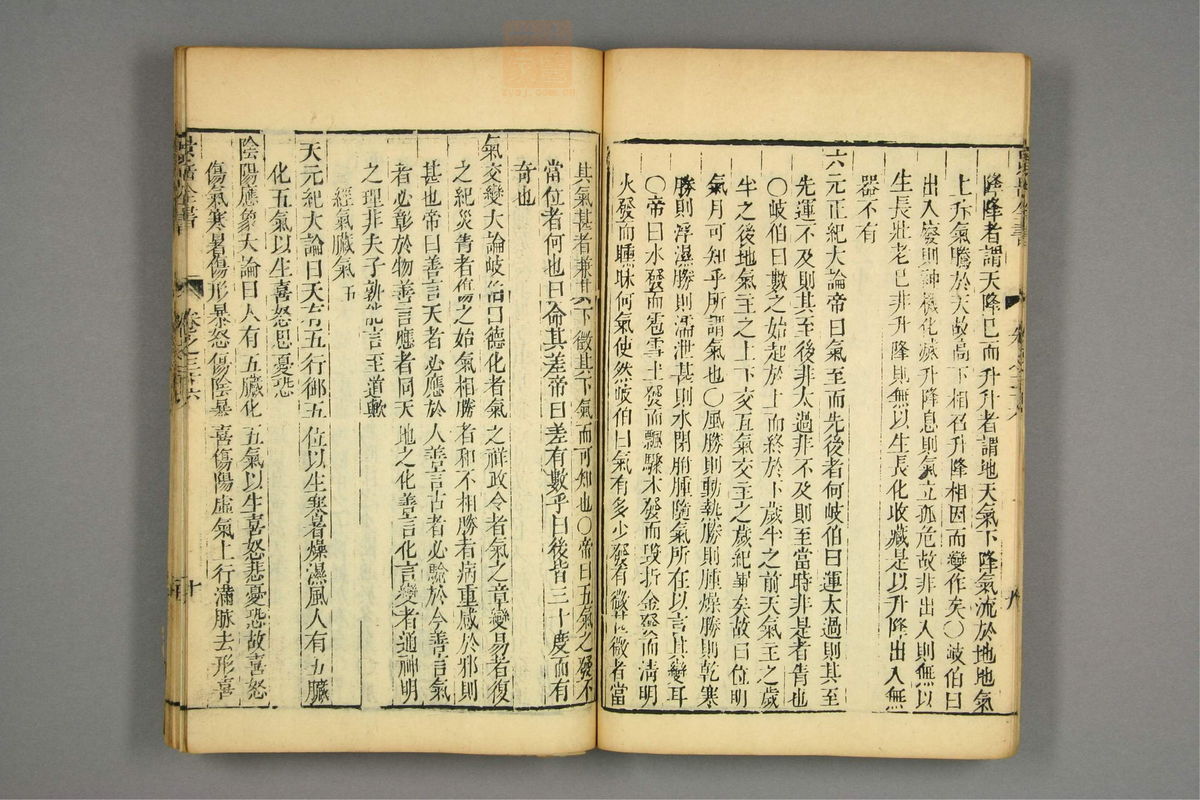 降降者謂天降已而升升者謂地天氣下降氣流於地地氣
上升氣騰於天故高下相召升降相因而變作矣〇岐伯曰
出入廢則神機化滅升降息則氣立孤危故非出入則無以
生長壯老已非升降則無以生長化收藏是以升降出入無
器不有
六元正紀大論帝曰氣至而先後者何岐伯曰運太過則其至
先運不及則其至後非太過非不及則至當時非是者眚也
〇岐伯曰數之始起於上而終於下歲半之前天氣主之歲
半之後地氣主之上下交互氣交主之歲紀畢矣故曰位明
氣月可知乎所謂氣也〇風勝則動熱勝則腫燥勝則乾寒
勝則浮濕勝則濡泄甚則水閉胕腫隨氣所在以言其變耳
〇帝曰水發而雹雪土發而飄驟木發而毀折金發而清明
火發而曛昧何氣使然岐伯曰氣有多少發有微甚微者當
其氣甚者兼其下徵其下氣而可知也〇帝曰五氣之發不
當位者何也曰命其差帝曰差有數乎曰後皆三十度而有
奇也
氣交變大論岐伯曰德化者氣之祥政令者氣之章變易者復
之紀災眚者傷之始氣相勝者和不相勝者病重感於邪則
甚也帝曰善言天者必應於人善言古者必驗於今善言氣
者必彰於物善言應者同天地之化善言化言變者通神明
之理非夫子孰能言至道歟
經氣臟氣 五
天元紀大論曰天有五行御五位以生寒暑燥濕風人有五臟
化五氣以生喜怒思憂恐
陰陽應象大論曰人有五臟化五氣以生喜怒悲憂恐故喜怒
傷氣寒暑傷形暴怒傷陰暴喜傷陽虛氣上行滿脉去形喜
卷之三十六
十